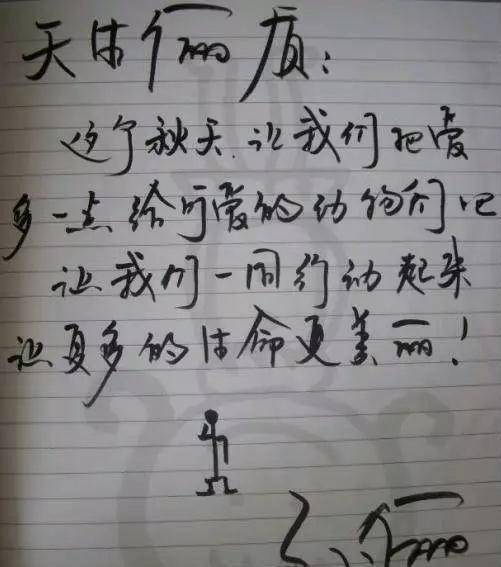 天生俪质：
这个秋天,让我们把爱
多一点给可爱的动物们吧
让我们一同行动起来
让更多的生命更美丽！
俪